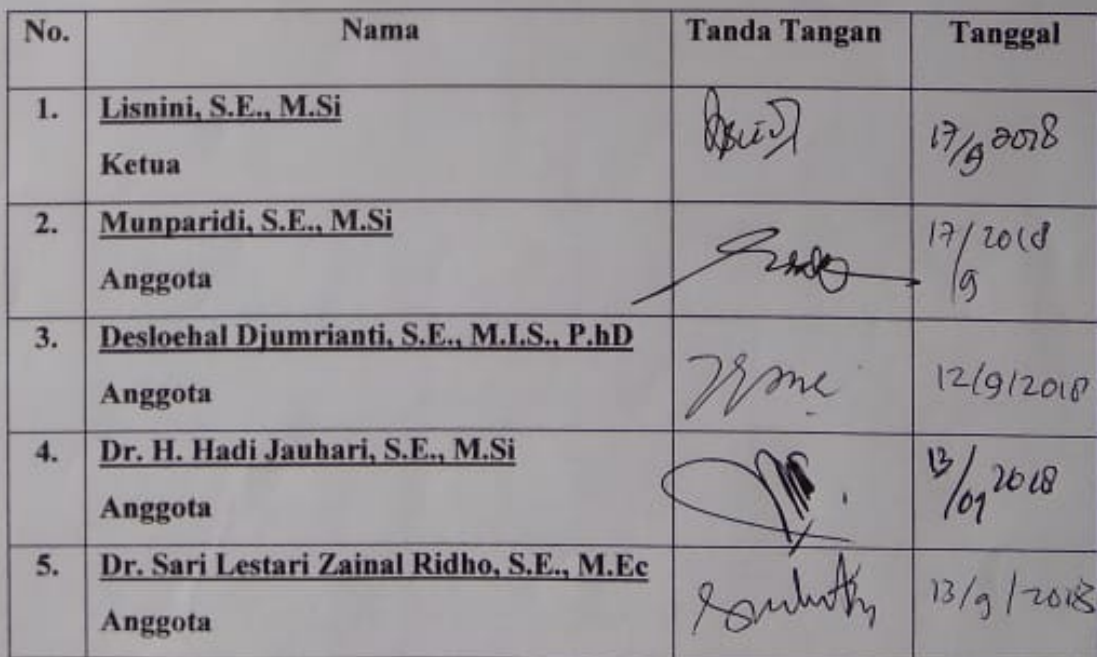 No. Nama Tanda Tangan Tanggal
1. Lisnini, S.E., M.Si
Ketua
17/9 2018
2. Munparidi, S.E., M.Si
Anggota
17/9 2018
3. Desloehal Djumrianti, S.E., M.I.S., P.hD
Anggota
12/9/2018
4. Dr. H. Hadi Jauhari, S.E., M.Si
Anggota
13/09 2018
5. Dr. Sari Lestari Zainal Ridho, S.E., M.Ec
Anggota
13/9/2018